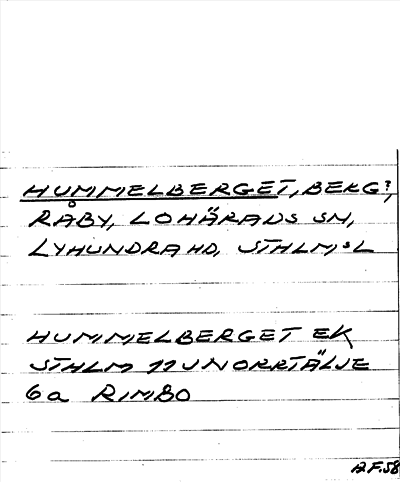 HUMMELBERGET, BERG?,
RÅBY, LOHÄRADS SN,
LYHUNDRA HD, STHLMSL
HUMMELBERGET EK
STHLM 11U NORRTÄLJE
6a RIMBO
A F. 58